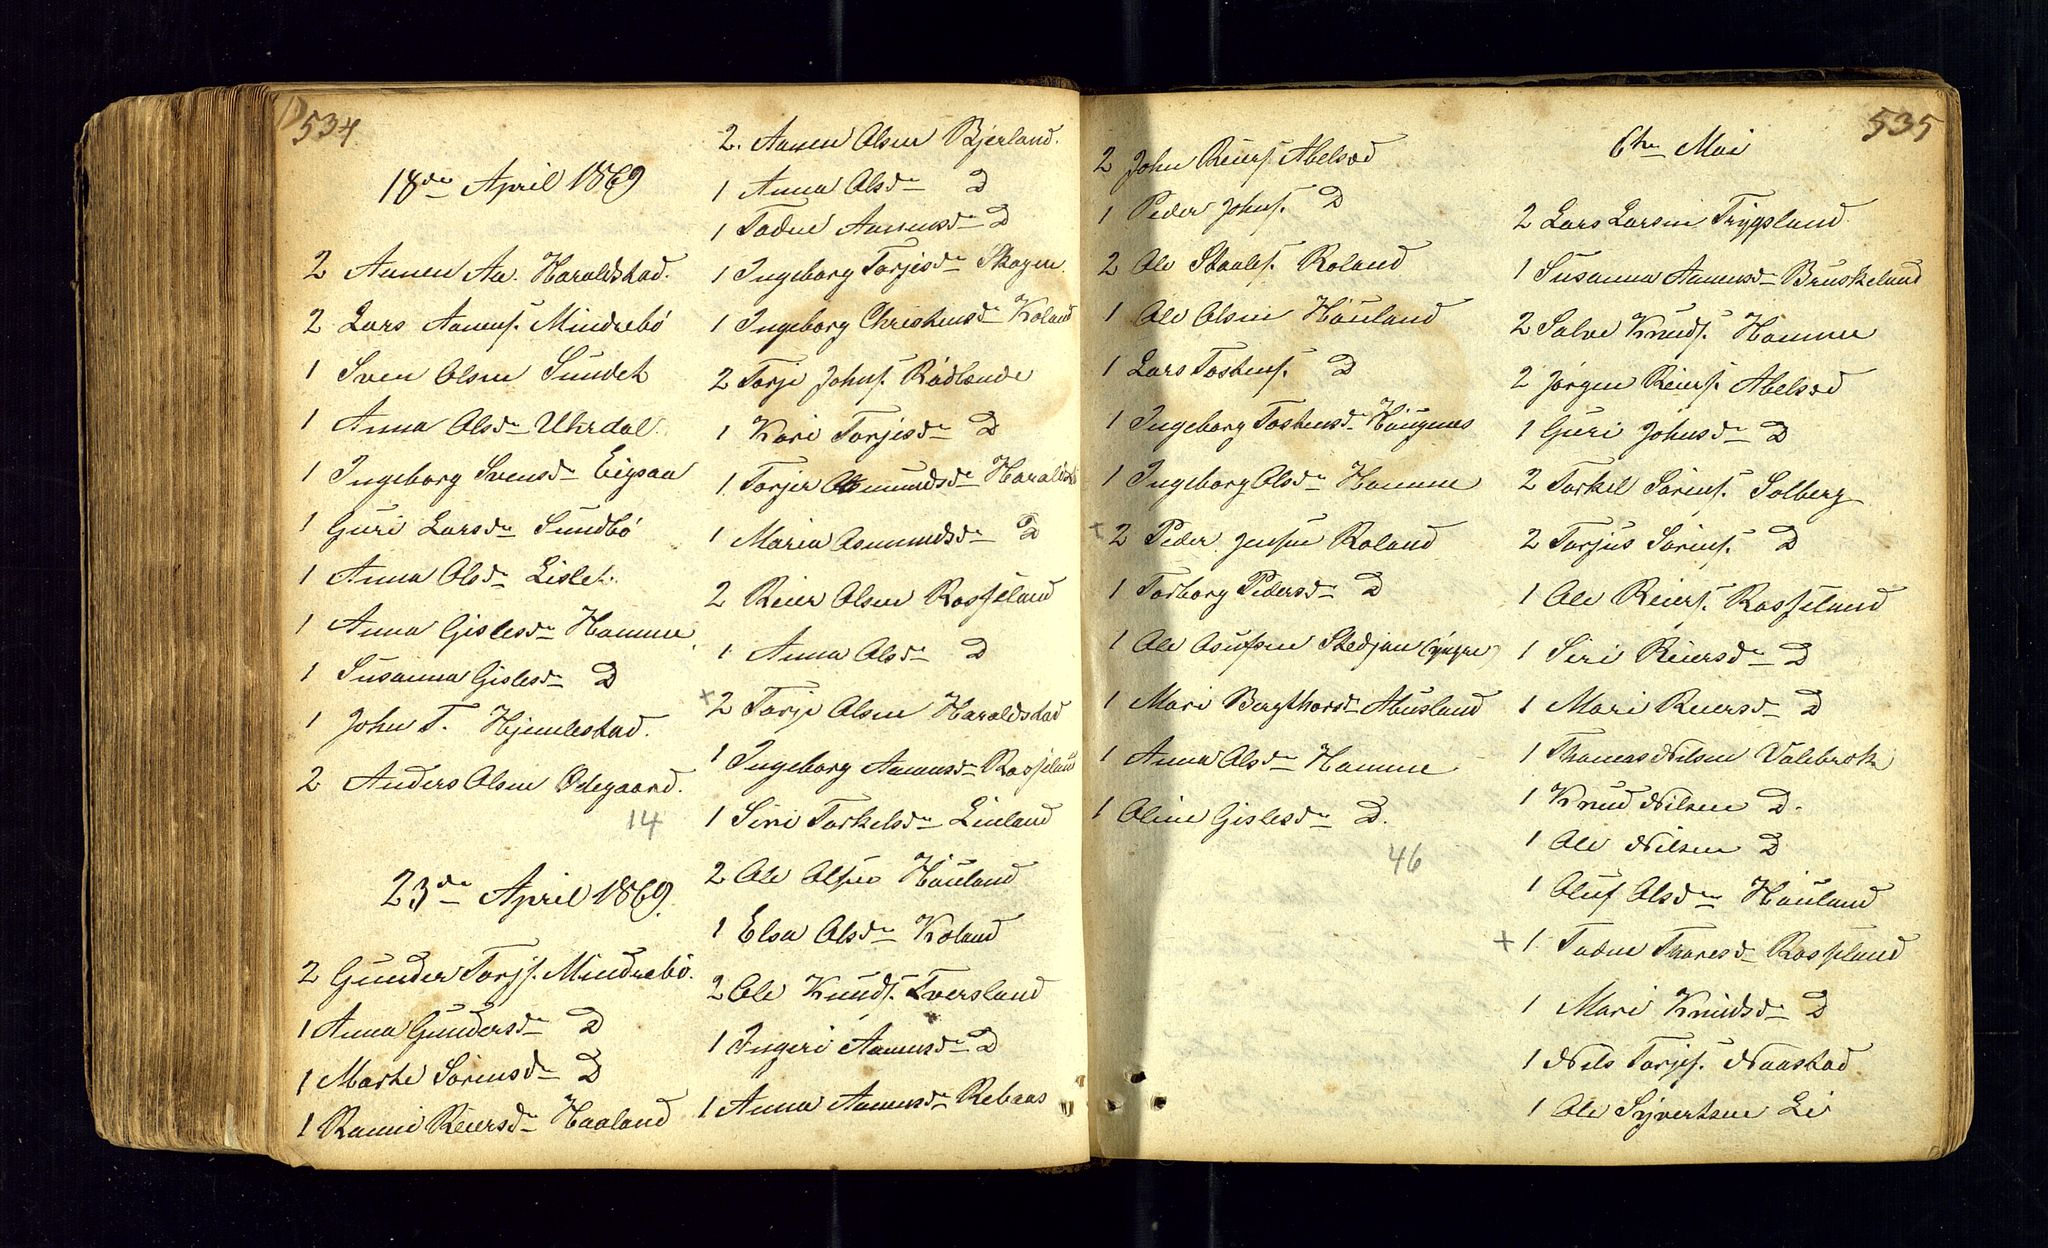 534
18de April 1869
2 Aanen Aa. Haraldstad.
2 Lars Aanens. Mindrebö
1 Sven Olsen Sundet
1 Anna Olsdr Uhrdal.
1 Ingeborg Svensdr Eigsaa
1 Guri Larsdr Sundbö
1 Anna Olsdr Lislet.
1 Anna Gislesdr Homme.
1 Susanna Gislesdr D
1 John T. Hjemlestad.
2 Anders Olsen Ødegaard.
14
23de April 1869.
2 Gunder Torjs. Mindrebö.
1 Anna Gundersdr D
1 Marte Sörensdr D
1 Ranni Reiersdr Haaland
2. Aanen Olsen Bjerland.
1 Anna Olsdr D
1 Todne Aanensdr D
1 Ingeborg Torjisdr Skogen
1 Ingeborg Christensdr Roland
2 Torje Johns. Rödlande
1 Kari Torjisdr D
1 Torjer Asmundsdr Haraldst
1 Maria Asmundsdr D
2 Reier Olsen Rosseland
1 Anna Olsdr D
+ 2 Torje Olsen Haraldstad
1 Ingeborg Aanensdr Rosseland
1 Siri Torkelsdr Linland
2 Ole Olsen Höuland
1 Elsa Olsdr Roland
2 Ole Knuds. Tversland
1 Ingeri Aanensdr D
1 Anna Aanensdr Rebaas
535
2 John Reiers. Abelsæd
1 Peder Johns. D
2 Ole Staales. Roland
1 Ole Olsen Höuland
1 Lars Tostens. D
1 Ingeborg Tostensdr Höugnes
1 Ingeborg Olsdr Homme
+ 2 Peder Jensen Roland
1 Torborg Pedersdr D
1 Ole Osufsen Stedjan (yngre)
1 Mari Bergthorsdr Abusland
1 Anna Olsdr Homme
1 Oline Gislesdr D.
46
6te Mai
2 Lars Larsen Trygsland
1 Susanna Aanensdr Bruskeland
2 Salve Knuds. Homme
2 Jörgen Reiers. Abelsæd
1 Guri Johnsdr D
2 Torkel Sörens. Solberg
2 Torjus Sörens. D
1 Ole Reiers. Rosseland
1 Siri Reiersdr D
1 Mari Reiersdr D
1 Thomas Nilsen Valebrok
1 Knud Nilsen D.
1 Ole Nilsen D
1 Oluf Olsdr Höuland
+ 1 Todne Thoresdr Rosseland
1 Mari Knudsdr D
1 Nils Torjes. Naastad
1 Ole Syvertsen Li